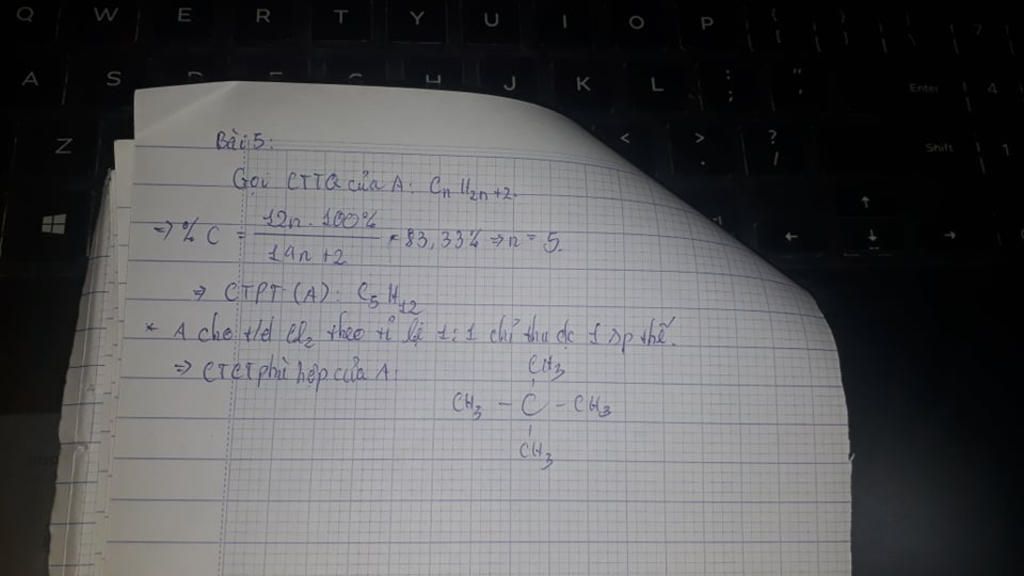 Q W E R T Y U I O P { }
A S D F G H J K L : ; " ' Enter 4
Z < , > . ? / Shift 1
Bài 5:
Gọi CTTQ của A: CnH2n+2.
=> % C = 12n . 100% / 14n + 2 = 83,33% => n = 5.
=> CTPT (A): C5H12
* A cho t/d Cl2 theo tỉ lệ 1:1 chỉ thu đc 1 sp thế.
=> CTCT phù hợp của A:
CH3
CH3 - C - CH3
CH3